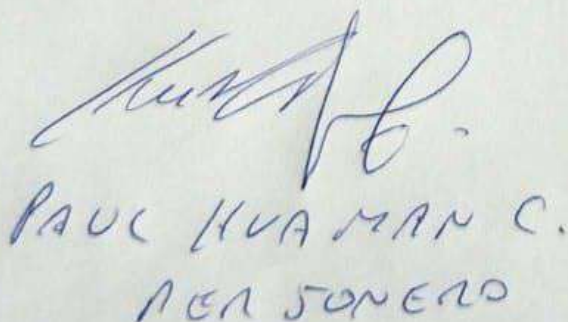 PAUL HUAMAN C.
PERSONERO